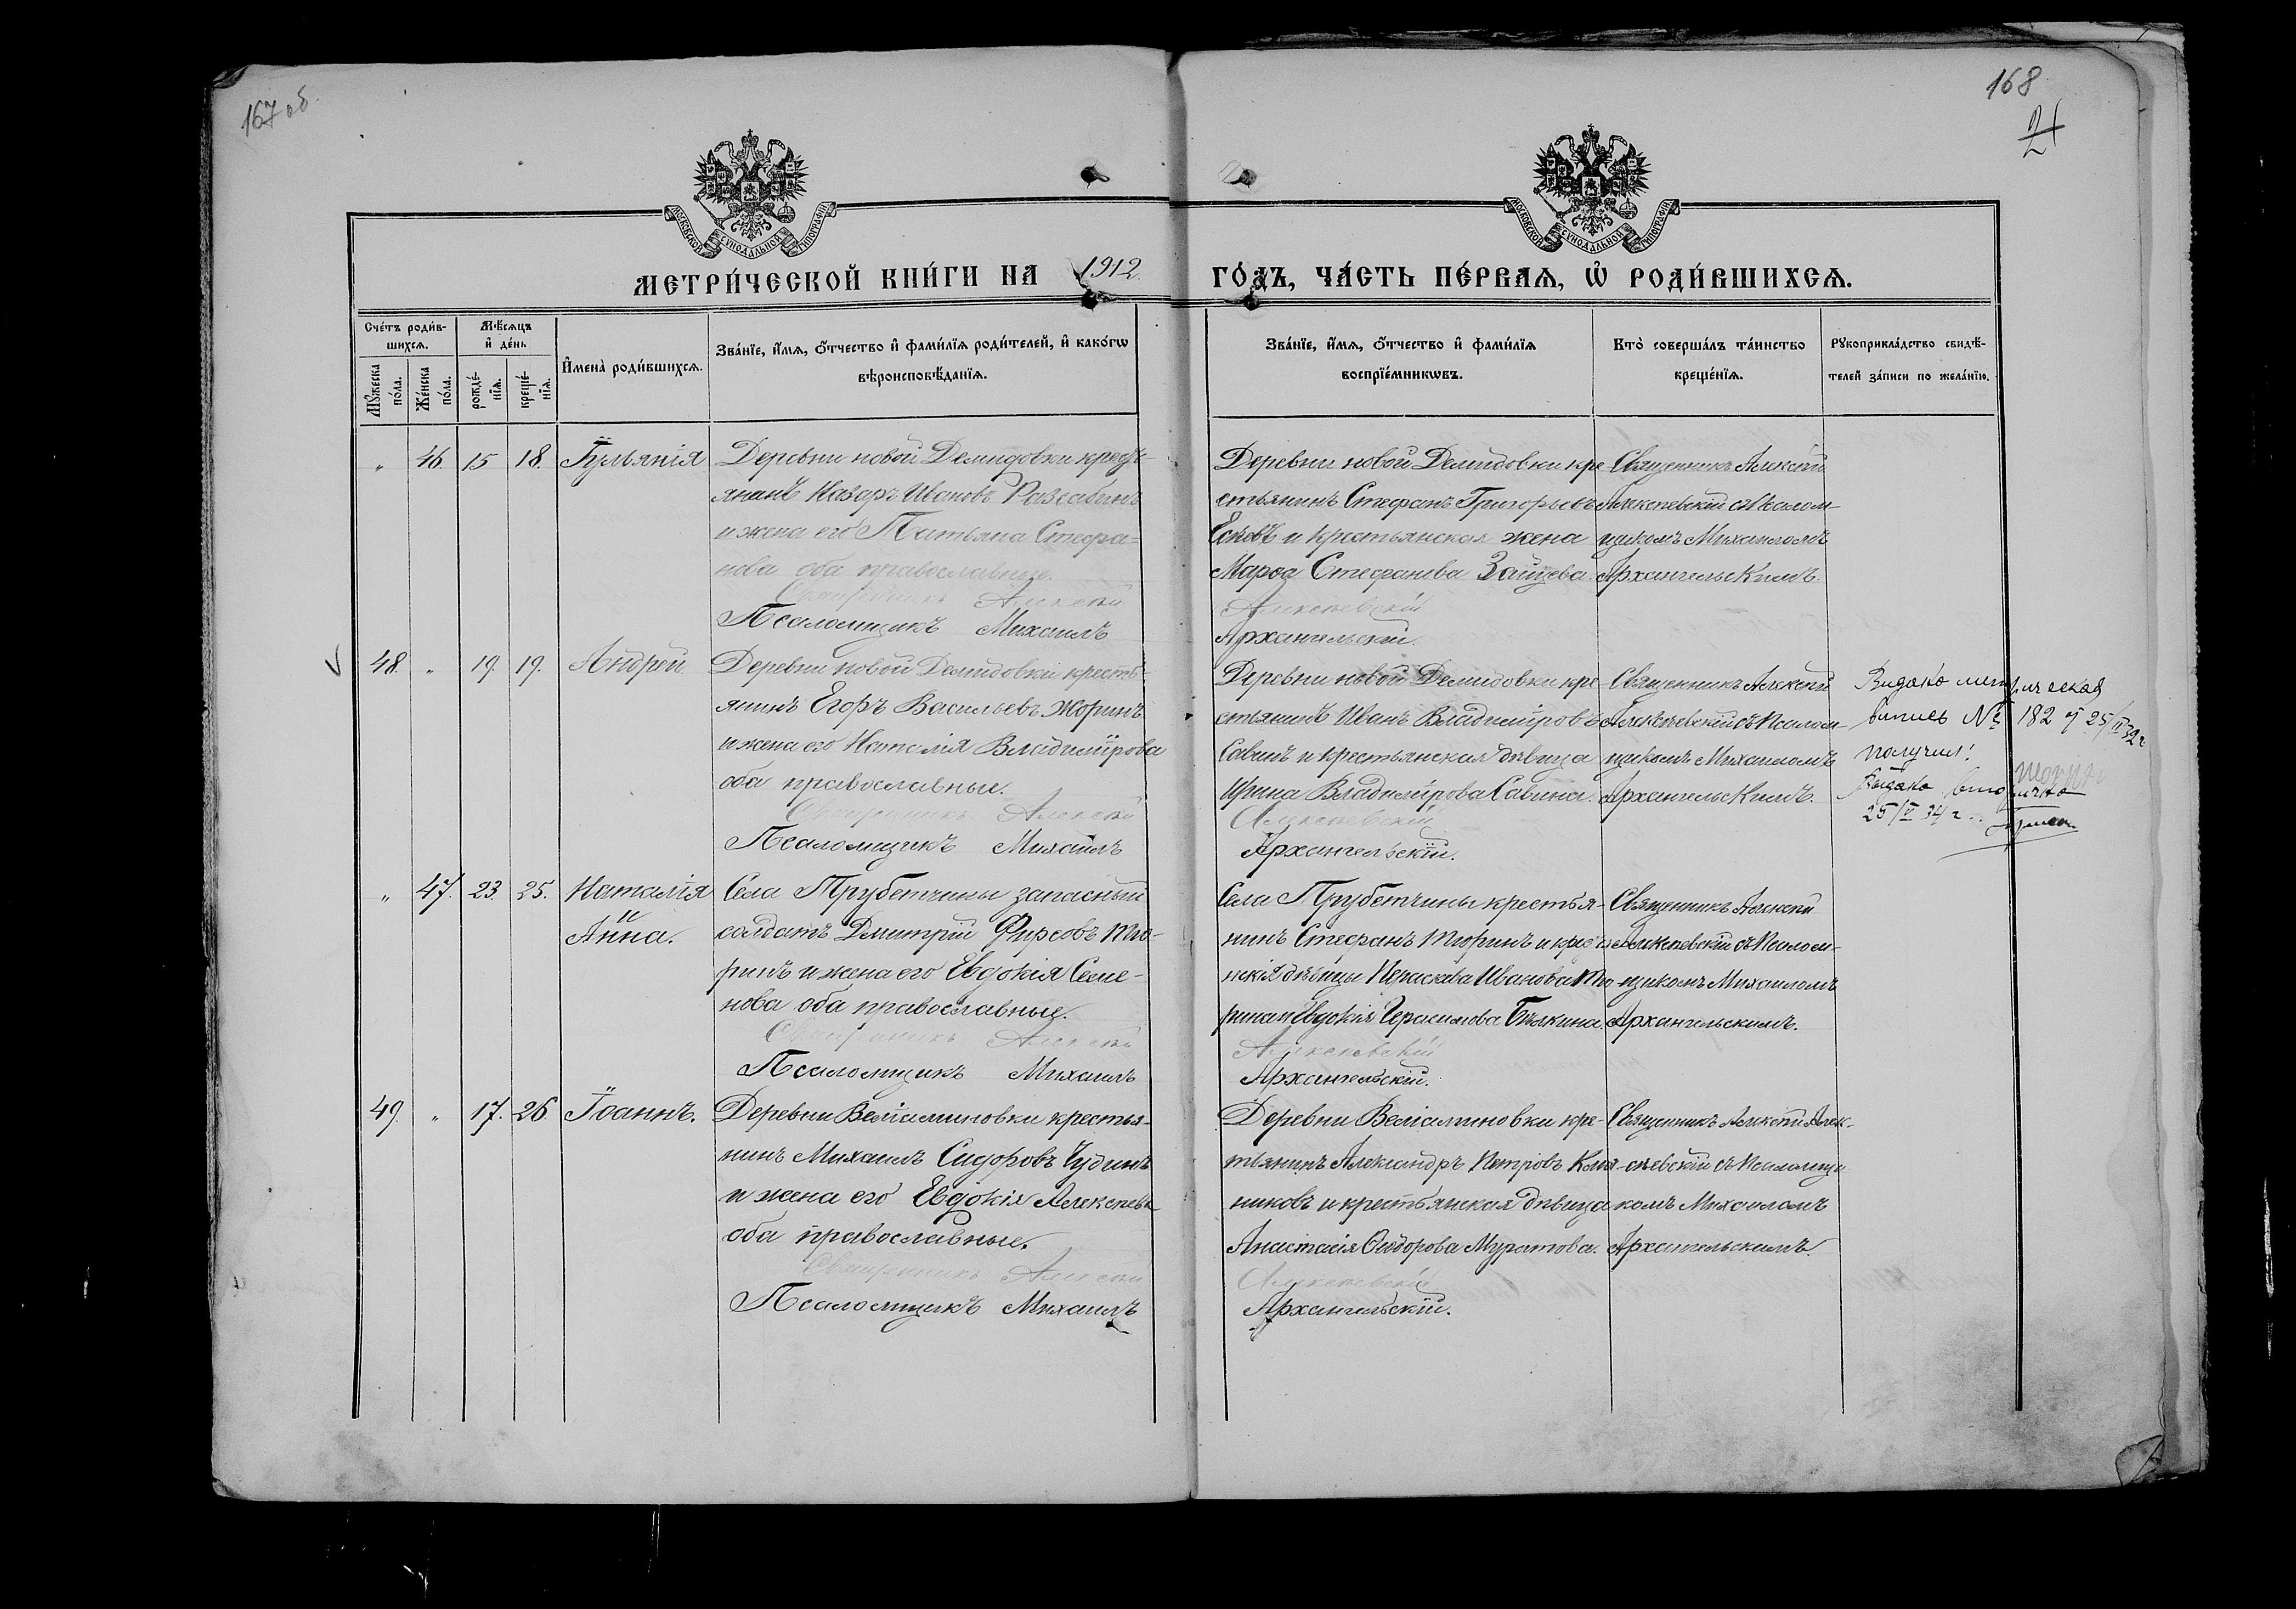 167 об.
168
21
МОСКОВСКОЙ СѴНОДАЛЬНОЙ ТИПОГРАФІИ
МОСКОВСКОЙ СѴНОДАЛЬНОЙ ТИПОГРАФІИ
МЕТРИ́ЧЕСКОЙ КНИ́ГИ НА 1912 ГО́ДЪ, ЧА́СТЬ ПЕ́РВАѦ, Ѡ҆ РОДИ́ВШИХСѦ.
Сче́тъ роди́в-
шихсѧ.
Мꙋ́жеска по́ла.
Же́нска по́ла.
Мѣ́сѧцъ
и҆ де́нь
рожде́-
нїѧ.
креще́-
нїѧ.
И҆мена̀ роди́вшихсѧ.
Зва́нїе, и҆́мѧ, ѻ҆́тчество и҆ фами́лїѧ роди́телей, и҆ како́гѡ
вѣроисповѣ́данїѧ.
Зва́нїе, и҆́мѧ, ѻ҆́тчество и҆ фами́лїѧ
воспрїе́мникѡвъ.
Кто̀ соверша́лъ та́инство
креще́нїѧ.
Рꙋкоприкла́дство свидѣ́-
телей за́писи по жела́нїю.
„ 46 15 18. Іульянія
Деревни новой Демидовки кресть-
янинъ Назаръ Ивановъ
и жена его Татьяна Стефа-
нова оба православные.
Священникъ Алексѣй
Псаломщикъ Михаилъ
Деревни новой Демидовки кре-
стьянинъ Стефанъ Григорьевъ
и крестьянская жена
Марѳа Стефанова Зайцева.
Алексѣевскій
Архангельскій.
Священникъ Алексѣй
Алексѣевскій съ Псалом-
щикомъ Михаиломъ
Архангельскимъ.
48. „ 19. 19. Андрей.
Деревни новой Демидовки кресть-
янинъ Егоръ Васильевъ Жоринъ
и жена его Наталія Владимірова
оба православные.
Священникъ Алексѣй
Псаломщикъ Михаилъ
Деревни новой Демидовки кре-
стьянинъ Иванъ Владиміровъ
Савинъ и крестьянская дѣвица
Ирина Владимірова Савина.
Алексѣевскій
Архангельскій.
Священникъ Алексѣй
Алексѣевскій съ Псалом-
щикомъ Михаиломъ
Архангельскимъ.
Выдана метрическая
выпись № 182 25/IV 32 г
получил!
Выдано вторично
25/V 34 г.
„ 47. 23. 25. Наталія
Анна.
Села Трубетчины запасный
солдатъ Дмитрій Фирсовъ Тю-
ринъ и жена его Евдокія Семе-
нова оба православные.
Священникъ Алексѣй
Псаломщикъ Михаилъ
Села Трубетчины крестья-
нинъ Стефанъ Тюринъ и крестья
нскія дѣвицы Параскева Иванова Тю-
рина и Евдокія Герасимова Бѣлкина.
Алексѣевскій
Архангельскій.
Священникъ Алексѣй
Алексѣевскій съ Псалом-
щикомъ Михаиломъ
Архангельскимъ.
49. „ 17. 26. Іоаннъ.
Деревни Веліаминовки крестья-
нинъ Михаилъ Сидоровъ Чудинъ
и жена его Евдокія Алексѣева
оба православные.
Священникъ Алексѣй
Псаломщикъ Михаилъ
Деревни Веліаминовки кре-
стьянинъ Александръ Петровъ
и крестьянская дѣвица
Анастасія Ѳеодорова Муратова.
Алексѣевскій
Архангельскій.
Священникъ Алексѣй Алек-
сѣевскій съ Псаломщи-
комъ Михаиломъ
Архангельскимъ.